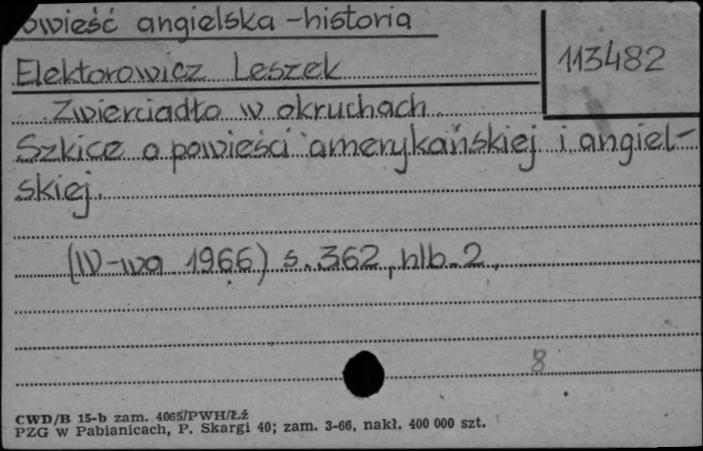 owieść angielska - historia
113482
Elektorowicz Leszek
Zwierciadło w okruchach.
Szkice o powieści amerykańskiej i angiel-
skiej.
(W-wa 1966) s. 362, nlb. 2,
8
CWD/B 15-b zam. 4065/PWH/Łź
PZG w Pabianicach, P. Skargi 40; zam. 3-66, nakł. 400 000 szt.